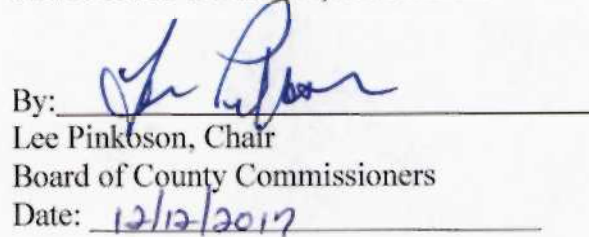 By:
Lee Pinkoson, Chair
Board of County Commissioners
Date: 12/12/2017